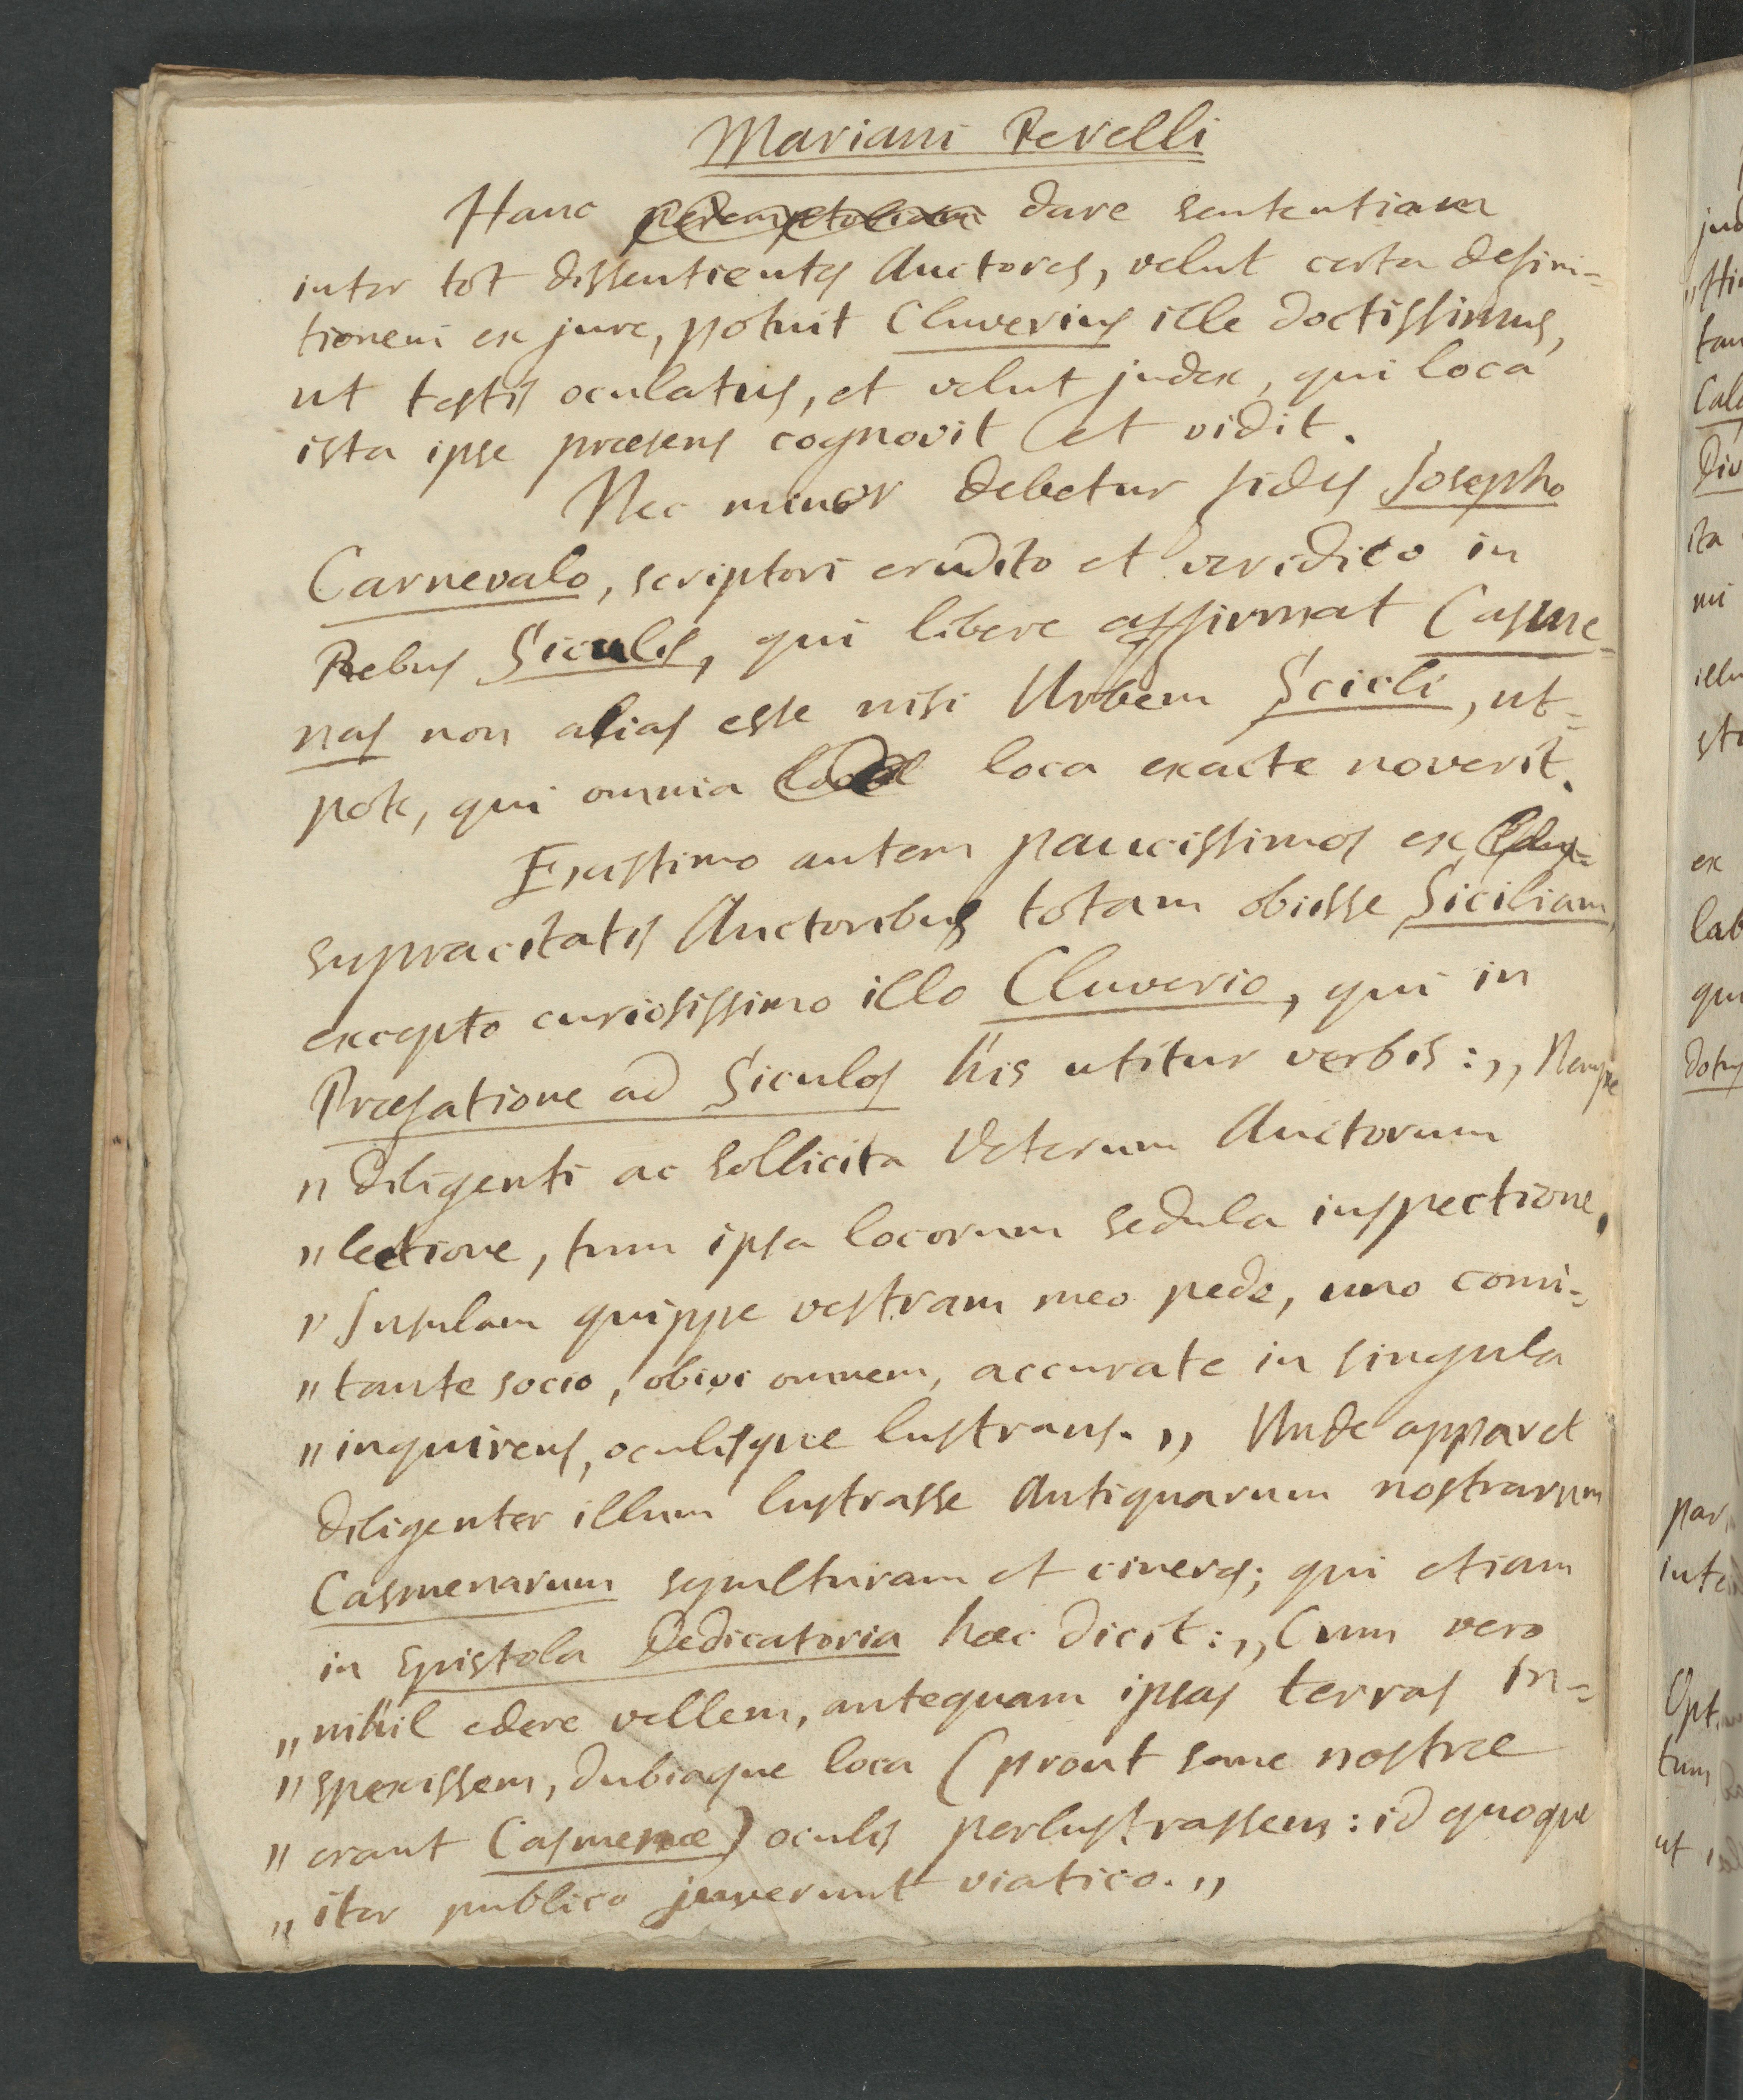 Mariani Perelli
Hanc peremptoriam dare sententiam
inter tot dissentientes Auctores, velut certa defini=
tionem ex jure, potuit Cluverius ille doctissimus,
ut testis oculatus, et velut judex, qui loca
ista ipse præsens cognovit et vidit.
Nec minor debetur fides Josepho
Carnevalo, scriptori erudito et veridico in
Rebus Siculis, qui libere affirmat Casme=
nas non alias esse nisi Urbem Scicli, ut=
pote, qui omnia loca exacte noverit.
Existimo autem paucissimos ex
supracitatis Auctoribus totam obiisse Siciliam,
excepto curiosissimo illo Cluverio, qui in
Præfatione ad Siculos his utitur verbis: „ Nempe
„ diligenti ac sollicita Veterum Auctorum
„ lectione, tum ipsa locorum sedula inspectione,
„ Insulam quippe vestram meo pede, uno comi=
„ tante socio, obivi omnem, accurate in singula
„ inquirens, oculisque lustrans. „ Unde apparet
diligenter illum lustrasse Antiquarum nostrarum
Casmenarum sepulturam et cineres; qui etiam
in Epistola Dedicatoria hæc dicit: „ Cum vero
„ nihil edere vellem, antequam ipsas terras in=
„ spexissem, dubiaque loca (prout sane nostræ
„ erant Casmenæ) oculis perlustrassem: id quoque
„ iter publico juverunt viatico. „